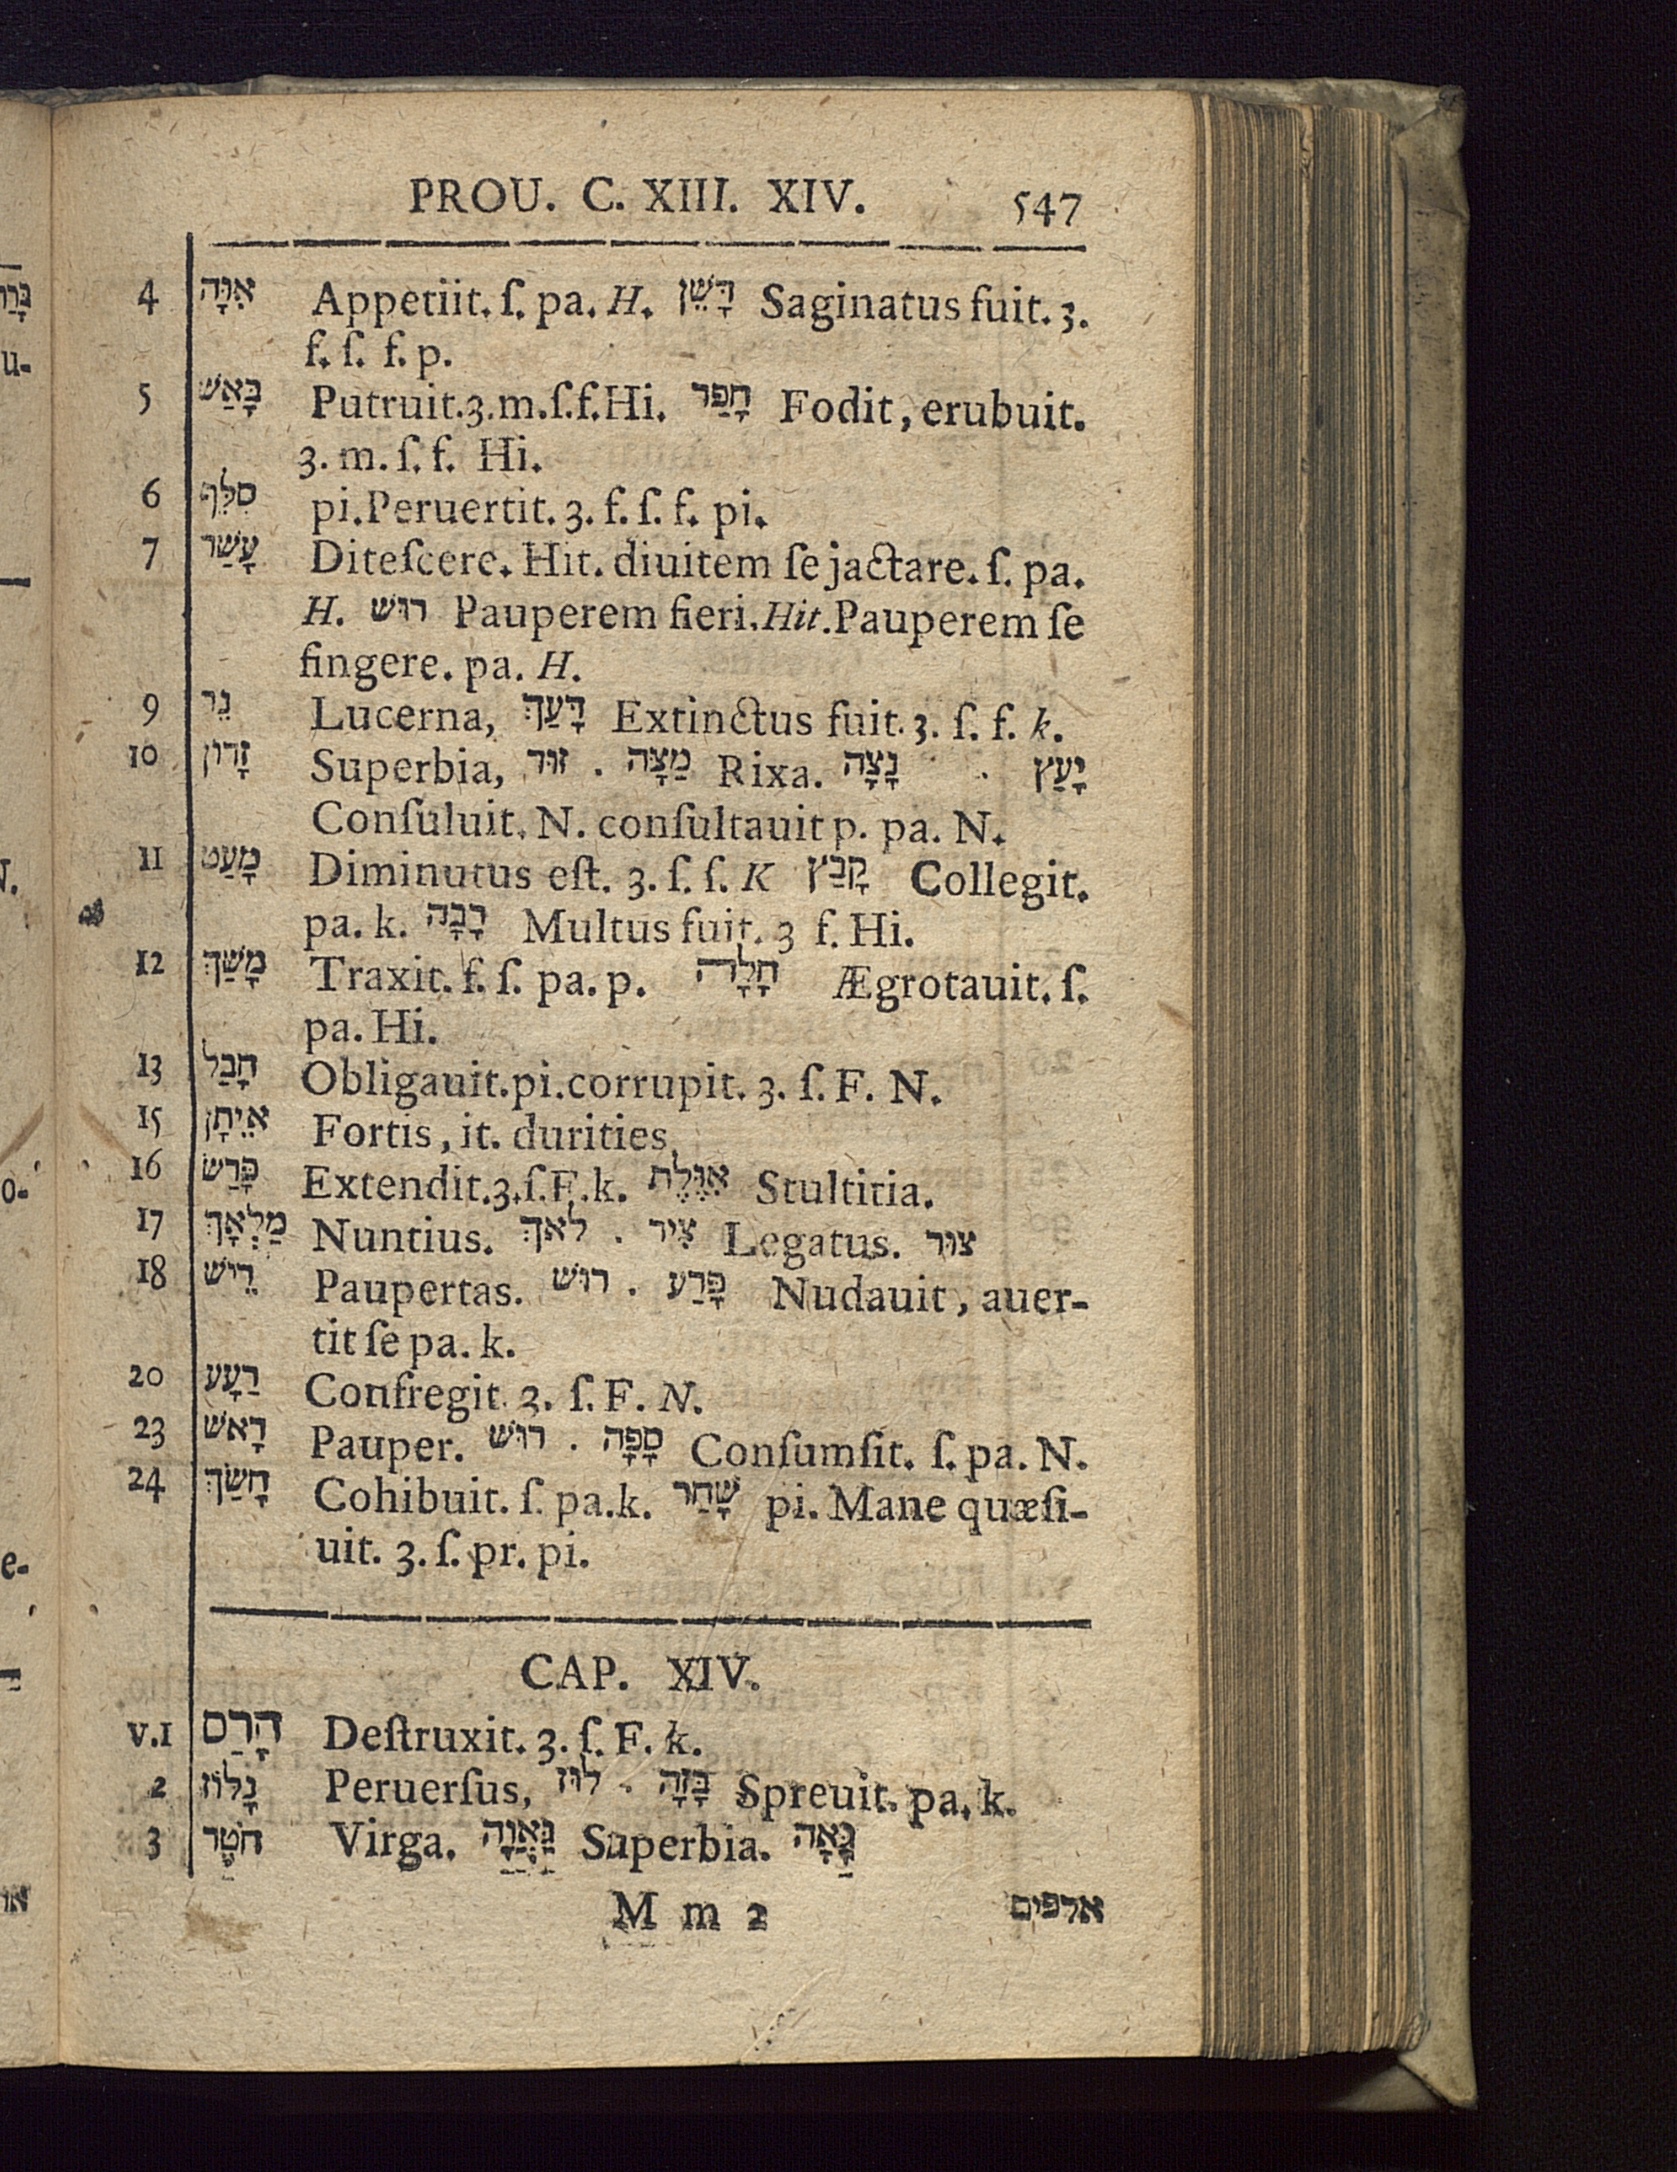 PROU. C. XIII. XIV. 547
4 אִוָּה Appetiit. ſ. pa. H. דָּשֵׁן Saginatus fuit. 3.
f. ſ. f. p.
5 בָּאַשׁ Putruit. 3. m. ſ. f. Hi. חָפַר Fodit, erubuit.
3. m. ſ. f. Hi.
6 סִלֵּף pi. Peruertit. 3. f. ſ. f. pi.
7 עָשַׁר Diteſcere. Hit. diuitem ſe jactare. ſ. pa.
H. רוּשׁ Pauperem fieri. Hit. Pauperem ſe
fingere. pa. H.
9 נֵר Lucerna, דָּעַךְ Extinctus fuit. 3. ſ. f. k.
10 זָדוֹן Superbia, זוּד . מַצָּה Rixa. נָצָה . יָעַץ
Conſuluit. N. conſultauit p. pa. N.
11 מָעַט Diminutus eſt. 3. ſ. ſ. K קָבַץ Collegit.
pa. k. רָבָה Multus fuit. 3 f. Hi.
12 מָשַׁךְ Traxit. f. ſ. pa. p. חָלָה Ægrotauit. ſ.
pa. Hi.
13 חָבַל Obligauit. pi. corrupit. 3. ſ. F. N.
15 אֵיתָן Fortis, it. durities
16 פָּרַשׂ Extendit. 3. ſ. F. k. אִוֶּלֶת Stultitia.
17 מַלְאָךְ Nuntius. לאך . צִיר Legatus. צוּר
18 רֵישׁ Paupertas. רוּשׁ . פָּרַע Nudauit, auer-
tit ſe pa. k.
20 רַעָע Confregit 3. ſ. F. N.
23 רָאשׁ Pauper. רוּשׁ . סָפָה Conſumſit. ſ. pa. N.
24 חָשַׂךְ Cohibuit. ſ. pa. k. שָׁחַר pi. Mane quæſi-
uit. 3. ſ. pr. pi.
CAP. XIV.
V. 1 הָרַס Deſtruxit. 3. ſ. F. k.
2 נָלוֹז Peruerſus, לוּז . בָּזָה Spreuit. pa. k.
3 חֹטֶר Virga. גַּאֲוָה Superbia. גָּאָה
M m 2 אלפים